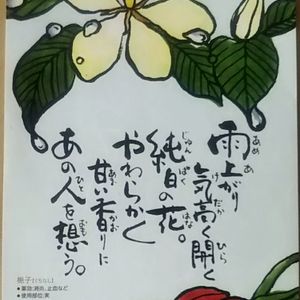 雨上がり
気高く開く
純白の花。
やわらかく
甘い香りに
あの人を想う。
梔子【くちなし】
●薬効:消炎、止血など
●使用部位:実